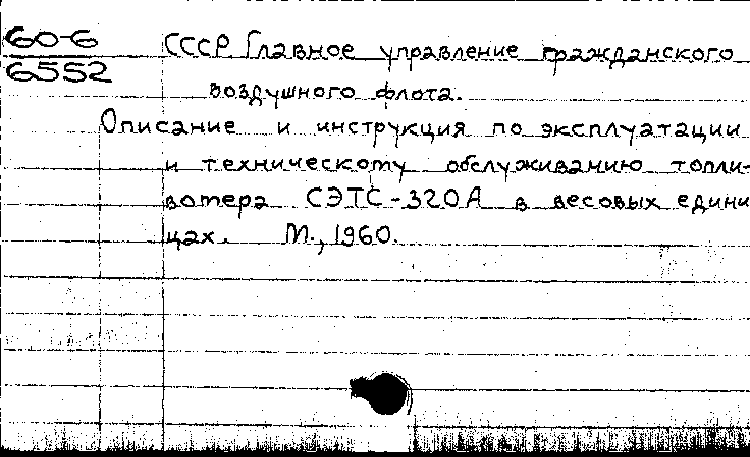 60-6
6552
СССР Главное управление гражданского
воздушного флота.
Описание и инструкция по эксплуатации
и техническому обслуживанию топли-
вотера СЭТС-320А в весовых едини
цах. М., 1960.